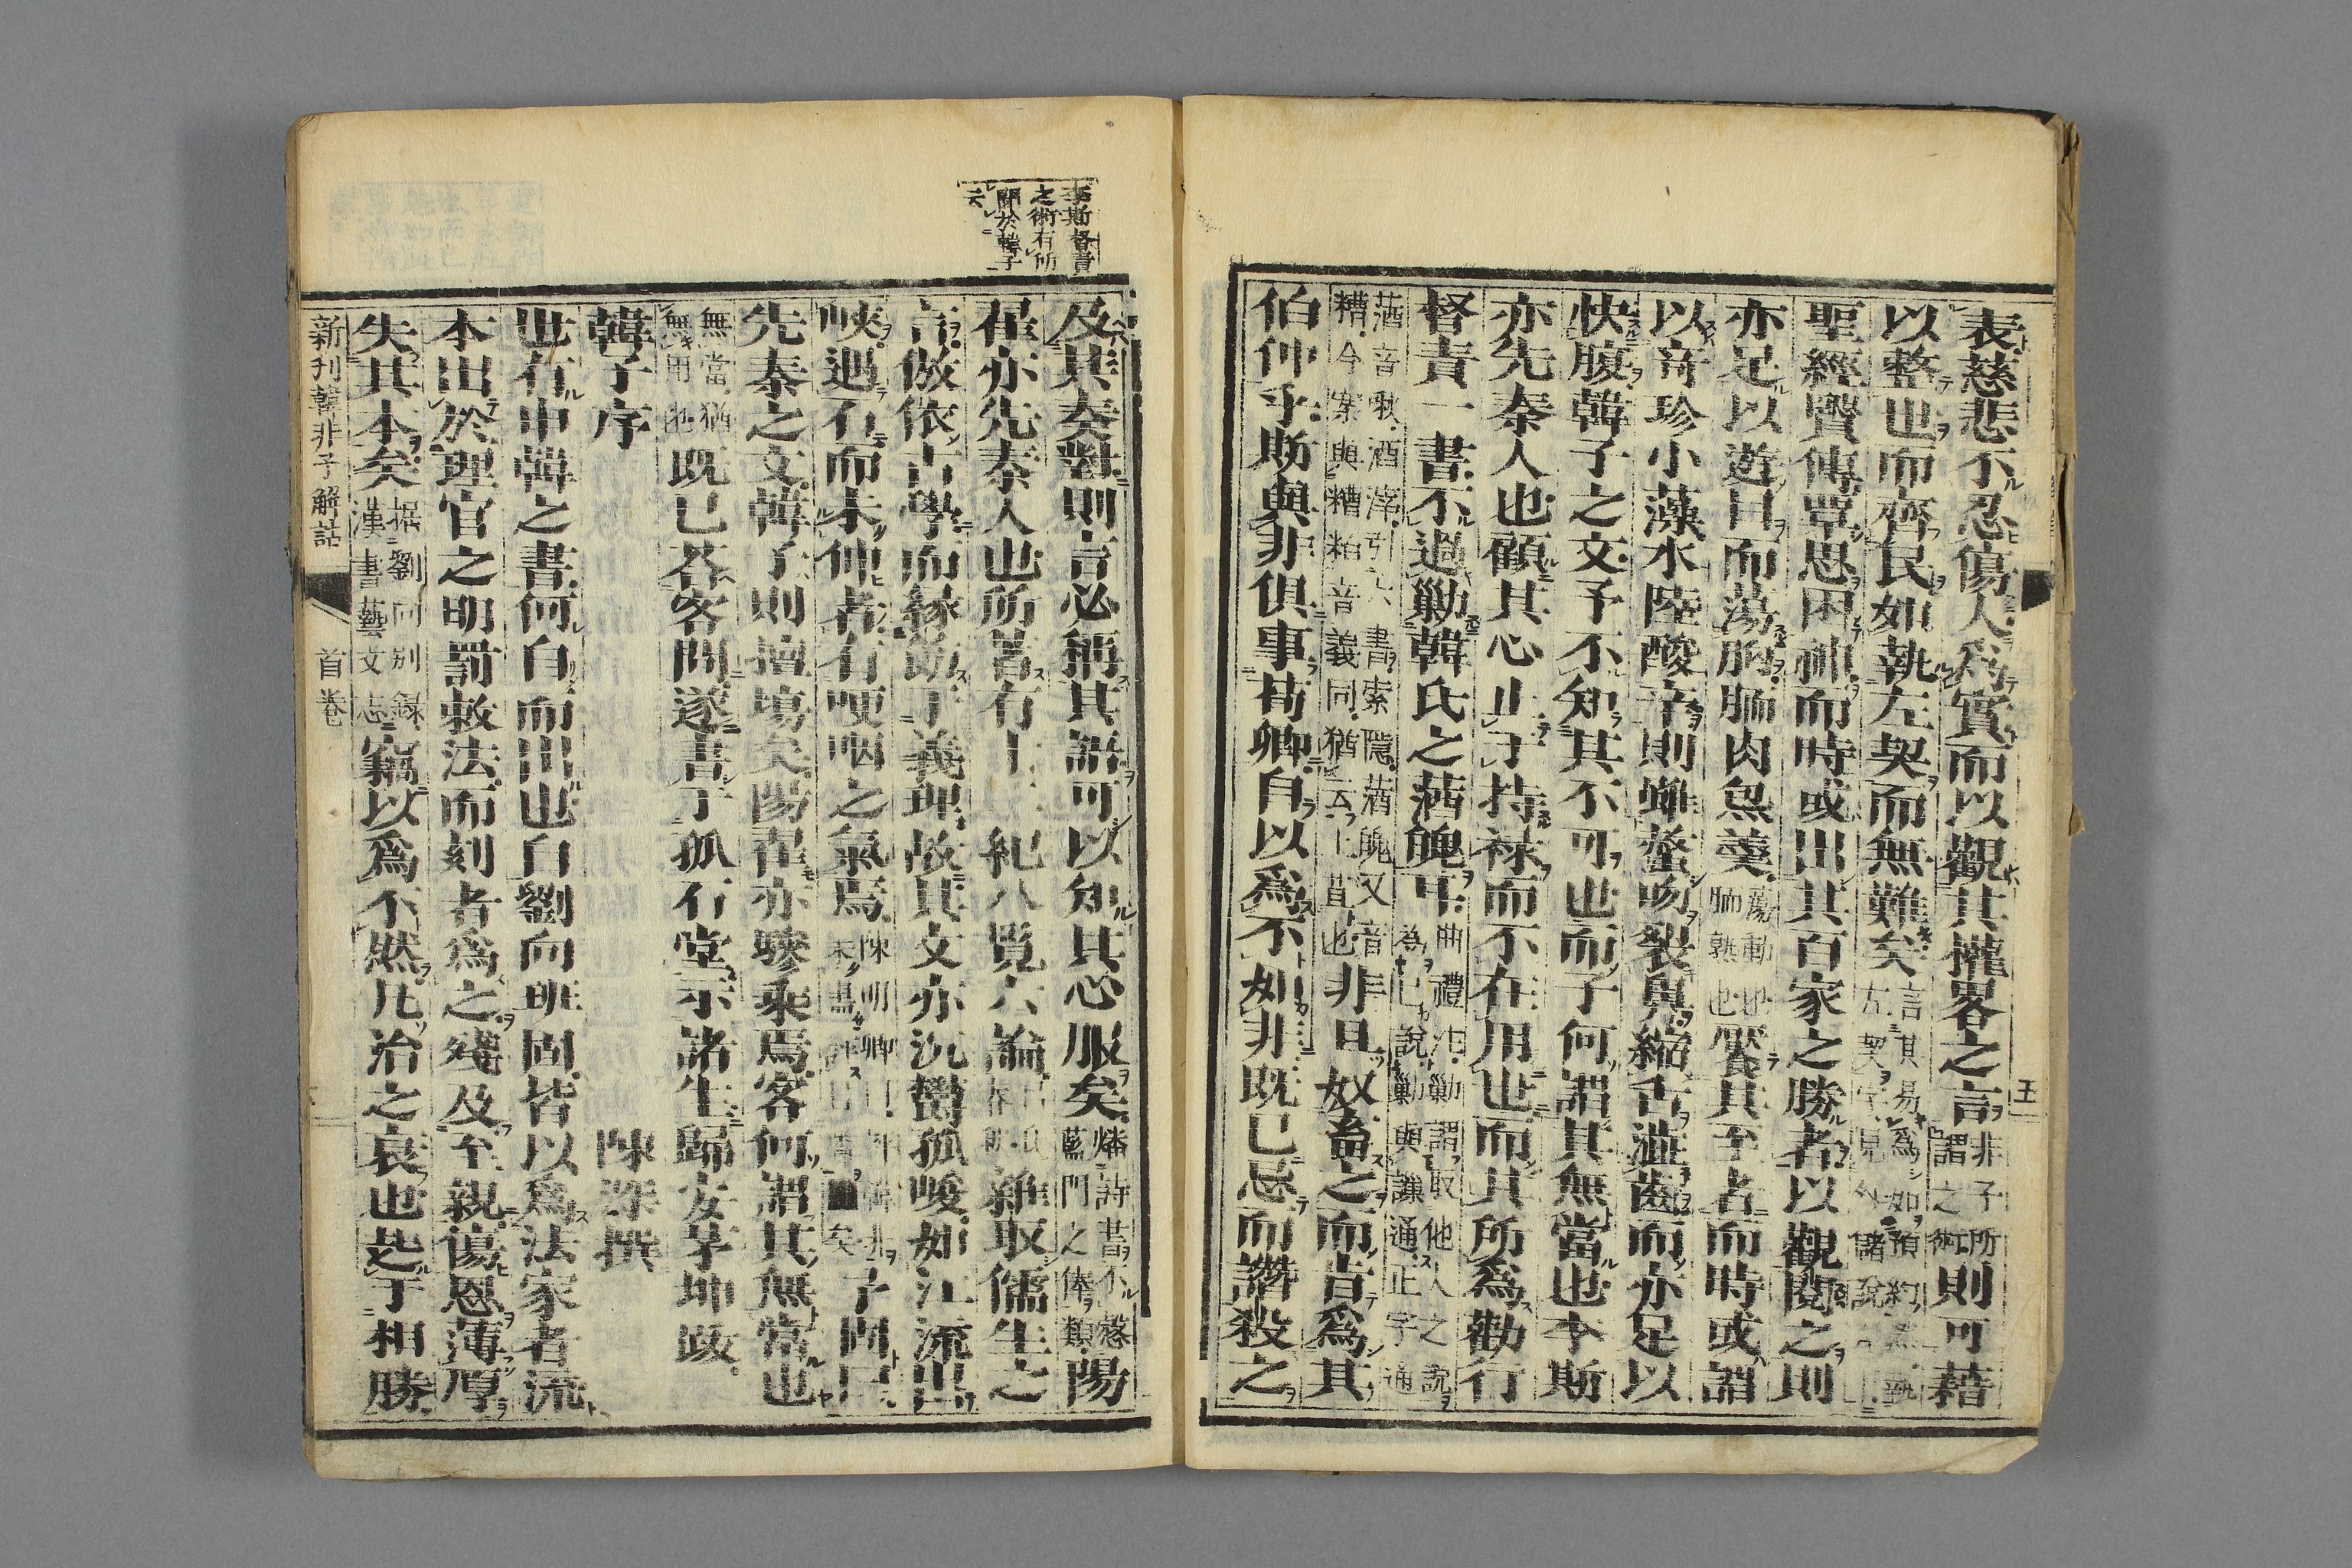 表慈悲不忍傷人爲實而以觀其權畧之言非子所謂之術則可藉
以整也而齊民如執左契而無難矣言其易爲如預約
聖經賢傳覃思困神而時或出其百家之勝者以觀閲之則
亦足以遊目而蕩胸腼肉魚羹蕩動也腼熟也饜其至者而時或謂
以奇珍小藻水陸酸辛則蜇吻裂鼻縮舌澁齒而亦足以
快腹韓子之文予不知其不可也而子何謂其無當也本斯
亦先秦人也顧其心止于持禄而不在用世而其所爲勸行
督責一書不過勦韓氏之蕕魄耳曲禮注勦謂取他人之說爲己說勦與謙通正字通
糟今案與糟粕音義同猶云上昔也非且奴畜之而旹爲其
伯仲乎斯與非俱事荀卿自以爲不如非既已忌而譖殺之
李斯督責
之術有所
關於韓子
云
及其奏對則言必稱其語可以知其心服矣燔詩書不藍門之俸類陽
翟亦先秦人也所著有十二紀八覽六論雜取儒生之
言倣依古學而緣飭于義理故其文亦沉鬱孤峻如江流出
峽遇石而未伸者有哽咽之氣焉子問
先秦之文韓子則擅塲矣陽翟亦驂乘焉客何謂其無當也
無當猶無用也既已荅客問遂書于孤石堂示諸生歸安茅坤跋
韓子序
陳深撰
世有申韓之書何自而出也自劉向班固皆以爲法家者流
本出於理官之明罰敕法而刻者爲之殘及至親傷恩薄厚
失其本矣據劉向別録漢書藝文志竊以爲不然凡治之衰也起于相勝
新刊韓非子解詁
首卷
五